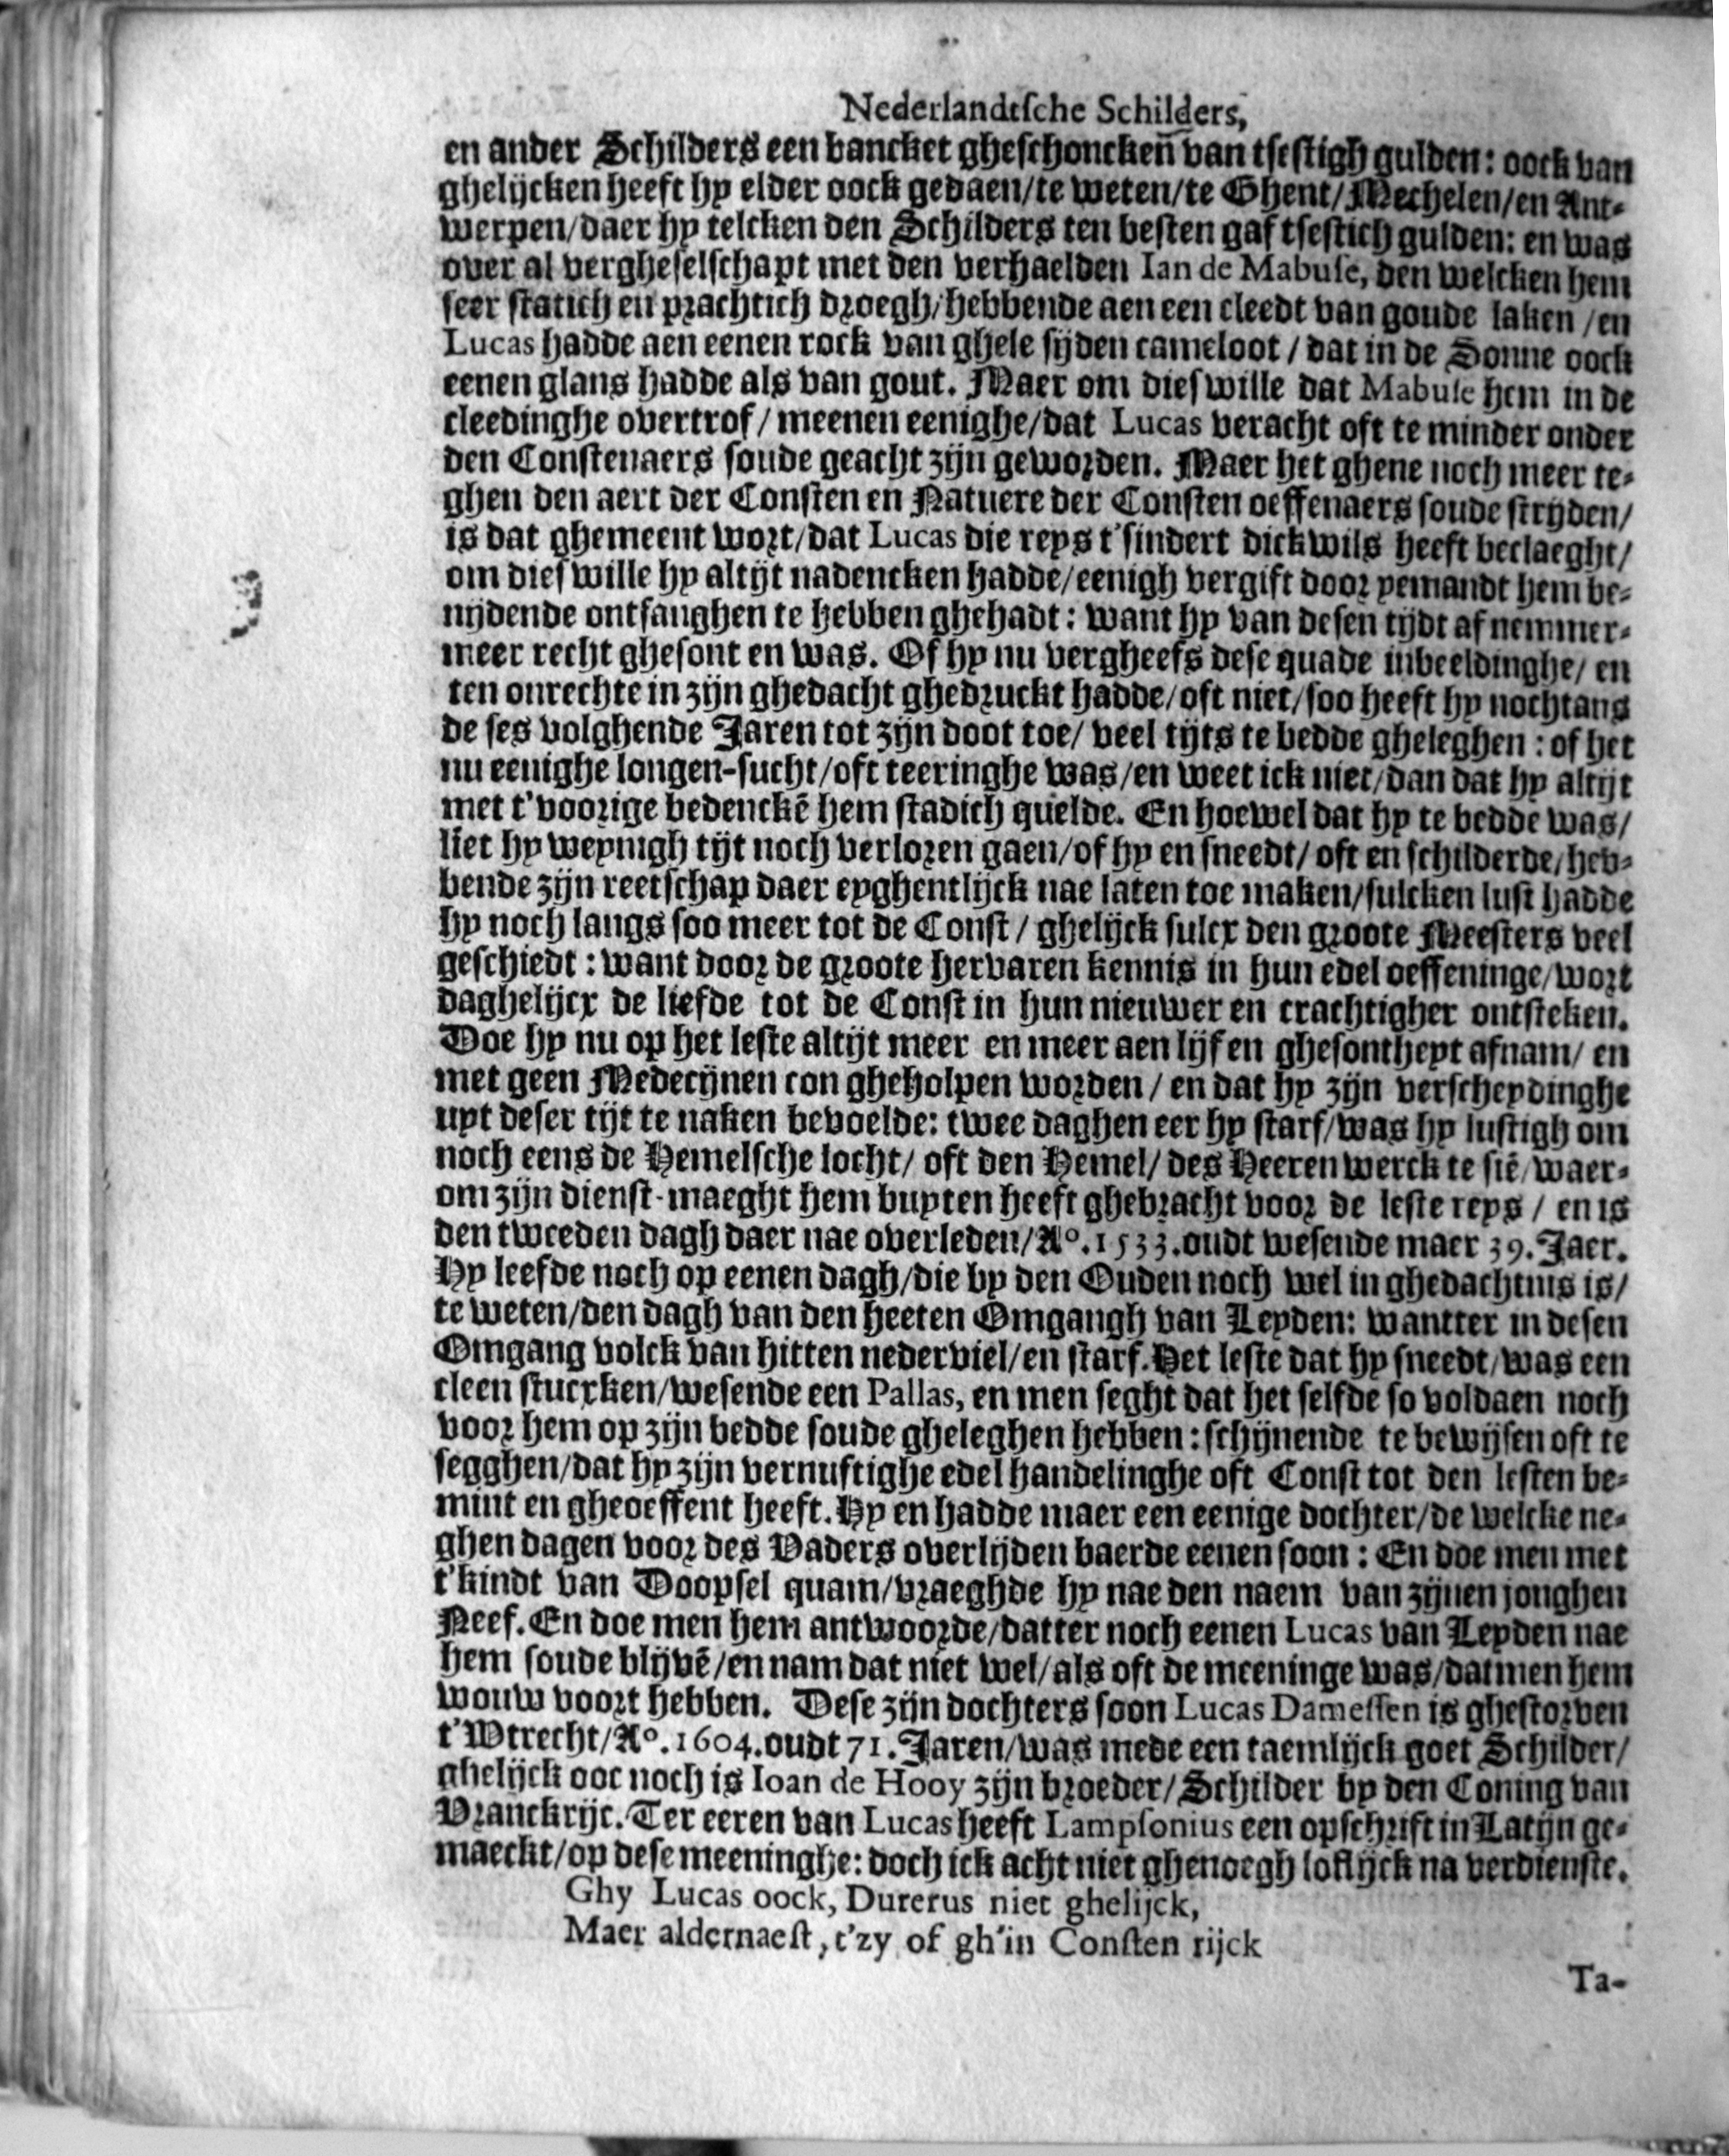 Nederlandtsche Schilders,
en ander Schilders een bancket gheschoncken̄ van tsestigh gulden: oock van
ghelijcken heeft hy elder oock gedaen/te weten/te Ghent/Mechelen/en Ant-
werpen/daer hy telcken den Schilders ten besten gaf tsestich gulden: en was
over al vergheselschapt met den verhaelden Ian de Mabuse, den welcken hem
seer statich en prachtich droegh/hebbende aen een cleedt van goude laken/en
Lucas hadde aen eenen rock van ghele sijden cameloot/dat in de Sonne oock
eenen glans hadde als van gout. Maer om dies wille dat Mabuse hem in de
cleedinghe overtrof/meenen eenighe/dat Lucas veracht oft te minder onder
den Constenaers soude geacht zijn geworden. Maer het ghene noch meer te-
ghen den aert der Consten en Natuere der Consten oeffenaers soude strijden/
is dat ghemeent wort/dat Lucas die reys t'sindert dickwils heeft beclaeght/
om dies wille hy altijt nadencken hadde/eenigh vergift door yemandt hem be-
nijdende ontfanghen te hebben ghehadt: want hy van desen tijdt af nemmer-
meer recht ghesont en was. Of hy nu vergheefs dese quade inbeeldinghe/en
ten onrechte in zijn ghedacht ghedruckt hadde/oft niet/soo heeft hy nochtans
de ses volghende Jaren tot zijn doot toe/veel tijts te bedde gheleghen: of het
nu eenighe longen-sucht/oft teeringhe was/en weet ick niet/dan dat hy altijt
met t'voorige bedenckē hem stadich quelde. En hoewel dat hy te bedde was/
liet hy weynigh tijt noch verloren gaen/of hy en sneedt/oft en schilderde/heb-
bende zijn reetschap daer eyghentlijck nae laten toe maken/sulcken lust hadde
hy noch langs soo meer tot de Const/ghelijck sulcx den groote Meesters veel
geschiedt: want door de groote hervaren kennis in hun edel oeffeninge/wort
daghelijcx de liefde tot de Const in hun nieuwer en crachtigher ontsteken.
Doe hy nu op het leste altijt meer en meer aen lijf en ghesontheyt afnam/en
met geen Medecijnen con gheholpen worden/en dat hy zijn verscheydinghe
uyt deser tijt te naken bevoelde: twee daghen eer hy starf/was hy lustigh om
noch eens de Hemelsche locht/oft den Hemel/des Heeren werck te siē/waer-
om zijn dienst-maeght hem buyten heeft ghebracht voor de leste reys/en is
den tweeden dagh daer nae overleden/Aº.1533.oudt wesende maer 39.Jaer.
Hy leefde noch op eenen dagh/die by den Ouden noch wel in ghedachtnis is/
te weten/den dagh van den heeten Omgangh van Leyden: wantter in desen
Omgang volck van hitten nederviel/en starf. Het leste dat hy sneedt/was een
cleen stucxken/wesende een Pallas, en men seght dat het selfde so voldaen noch
voor hem op zijn bedde soude gheleghen hebben: schijnende te bewijsen oft te
segghen/dat hy zijn vernuftighe edel handelinghe oft Const tot den lesten be-
mint en gheoeffent heeft. Hy en hadde maer een eenige dochter/de welcke ne-
ghen dagen voor des Vaders overlijden baerde eenen soon: En doe men met
t'kindt van Doopsel quam/vraeghde hy nae den naem van zijnen jonghen
Neef. En doe men hem antwoorde/datter noch eenen Lucas van Leyden nae
hem soude blijvē/en nam dat niet wel/als oft de meeninge was/datmen hem
wouw voort hebben. Dese zijn dochters soon Lucas Damessen is ghestorven
t'Wtrecht/Aº.1604.oudt 71.Jaren/was mede een taemlijck goet Schilder/
ghelijck ooc noch is Ioan de Hooy zijn broeder/Schilder by den Coning van
Vranckrijc. Ter eeren van Lucas heeft Lampsonius een opschrift in Latijn ge-
maeckt/op dese meeninghe: doch ick acht niet ghenoegh loflijck na verdienste.
Ghy Lucas oock, Durerus niet ghelijck,
Maer aldernaest, t'zy of gh'in Consten rijck
Ta-